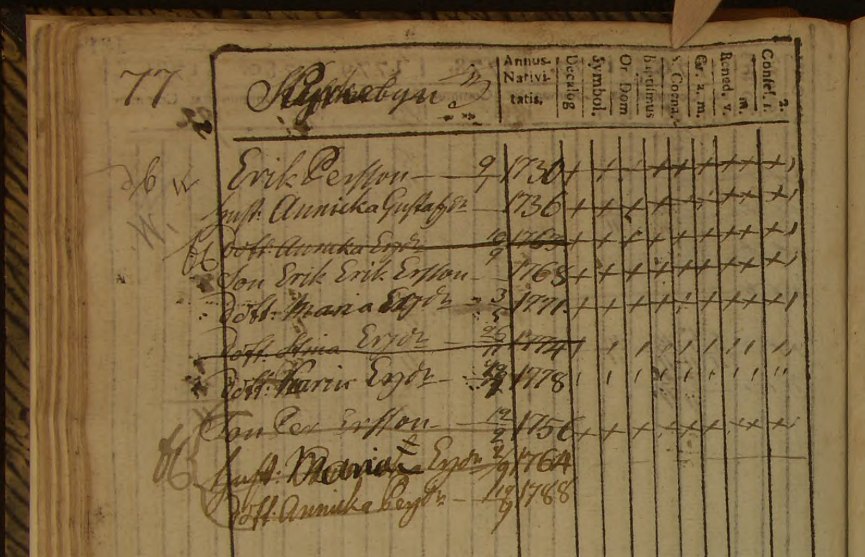 77
Kyrkebyn
Annus Nativitatis.
Decalog
Symbol.
Or. Dom
baptismus
s. Coena.
Gr. a. m.
Bened. v. m.
Confes. r. 2.
Erik Persson 9/1 1730 + + + + + + + + +
hust. Annicka Gustafzdr 1736 + + + + + + + +
dött. Annika Erzdr 1763 + + + + + + + + +
Son Erik Erik Ersson 1768 + + + + + + + + +
dött. Maria Erzdr 3/5 1771 + + + + + + + + +
dött. Stina Erzdr 26/11 1774
dött. Karin Erzdr 1778
Son Per Ersson 12/2 1756 + + + + + + + + +
hust. Maria Erzdr 2/9 1764
dött. Annicka Perzdr 19/9 1788